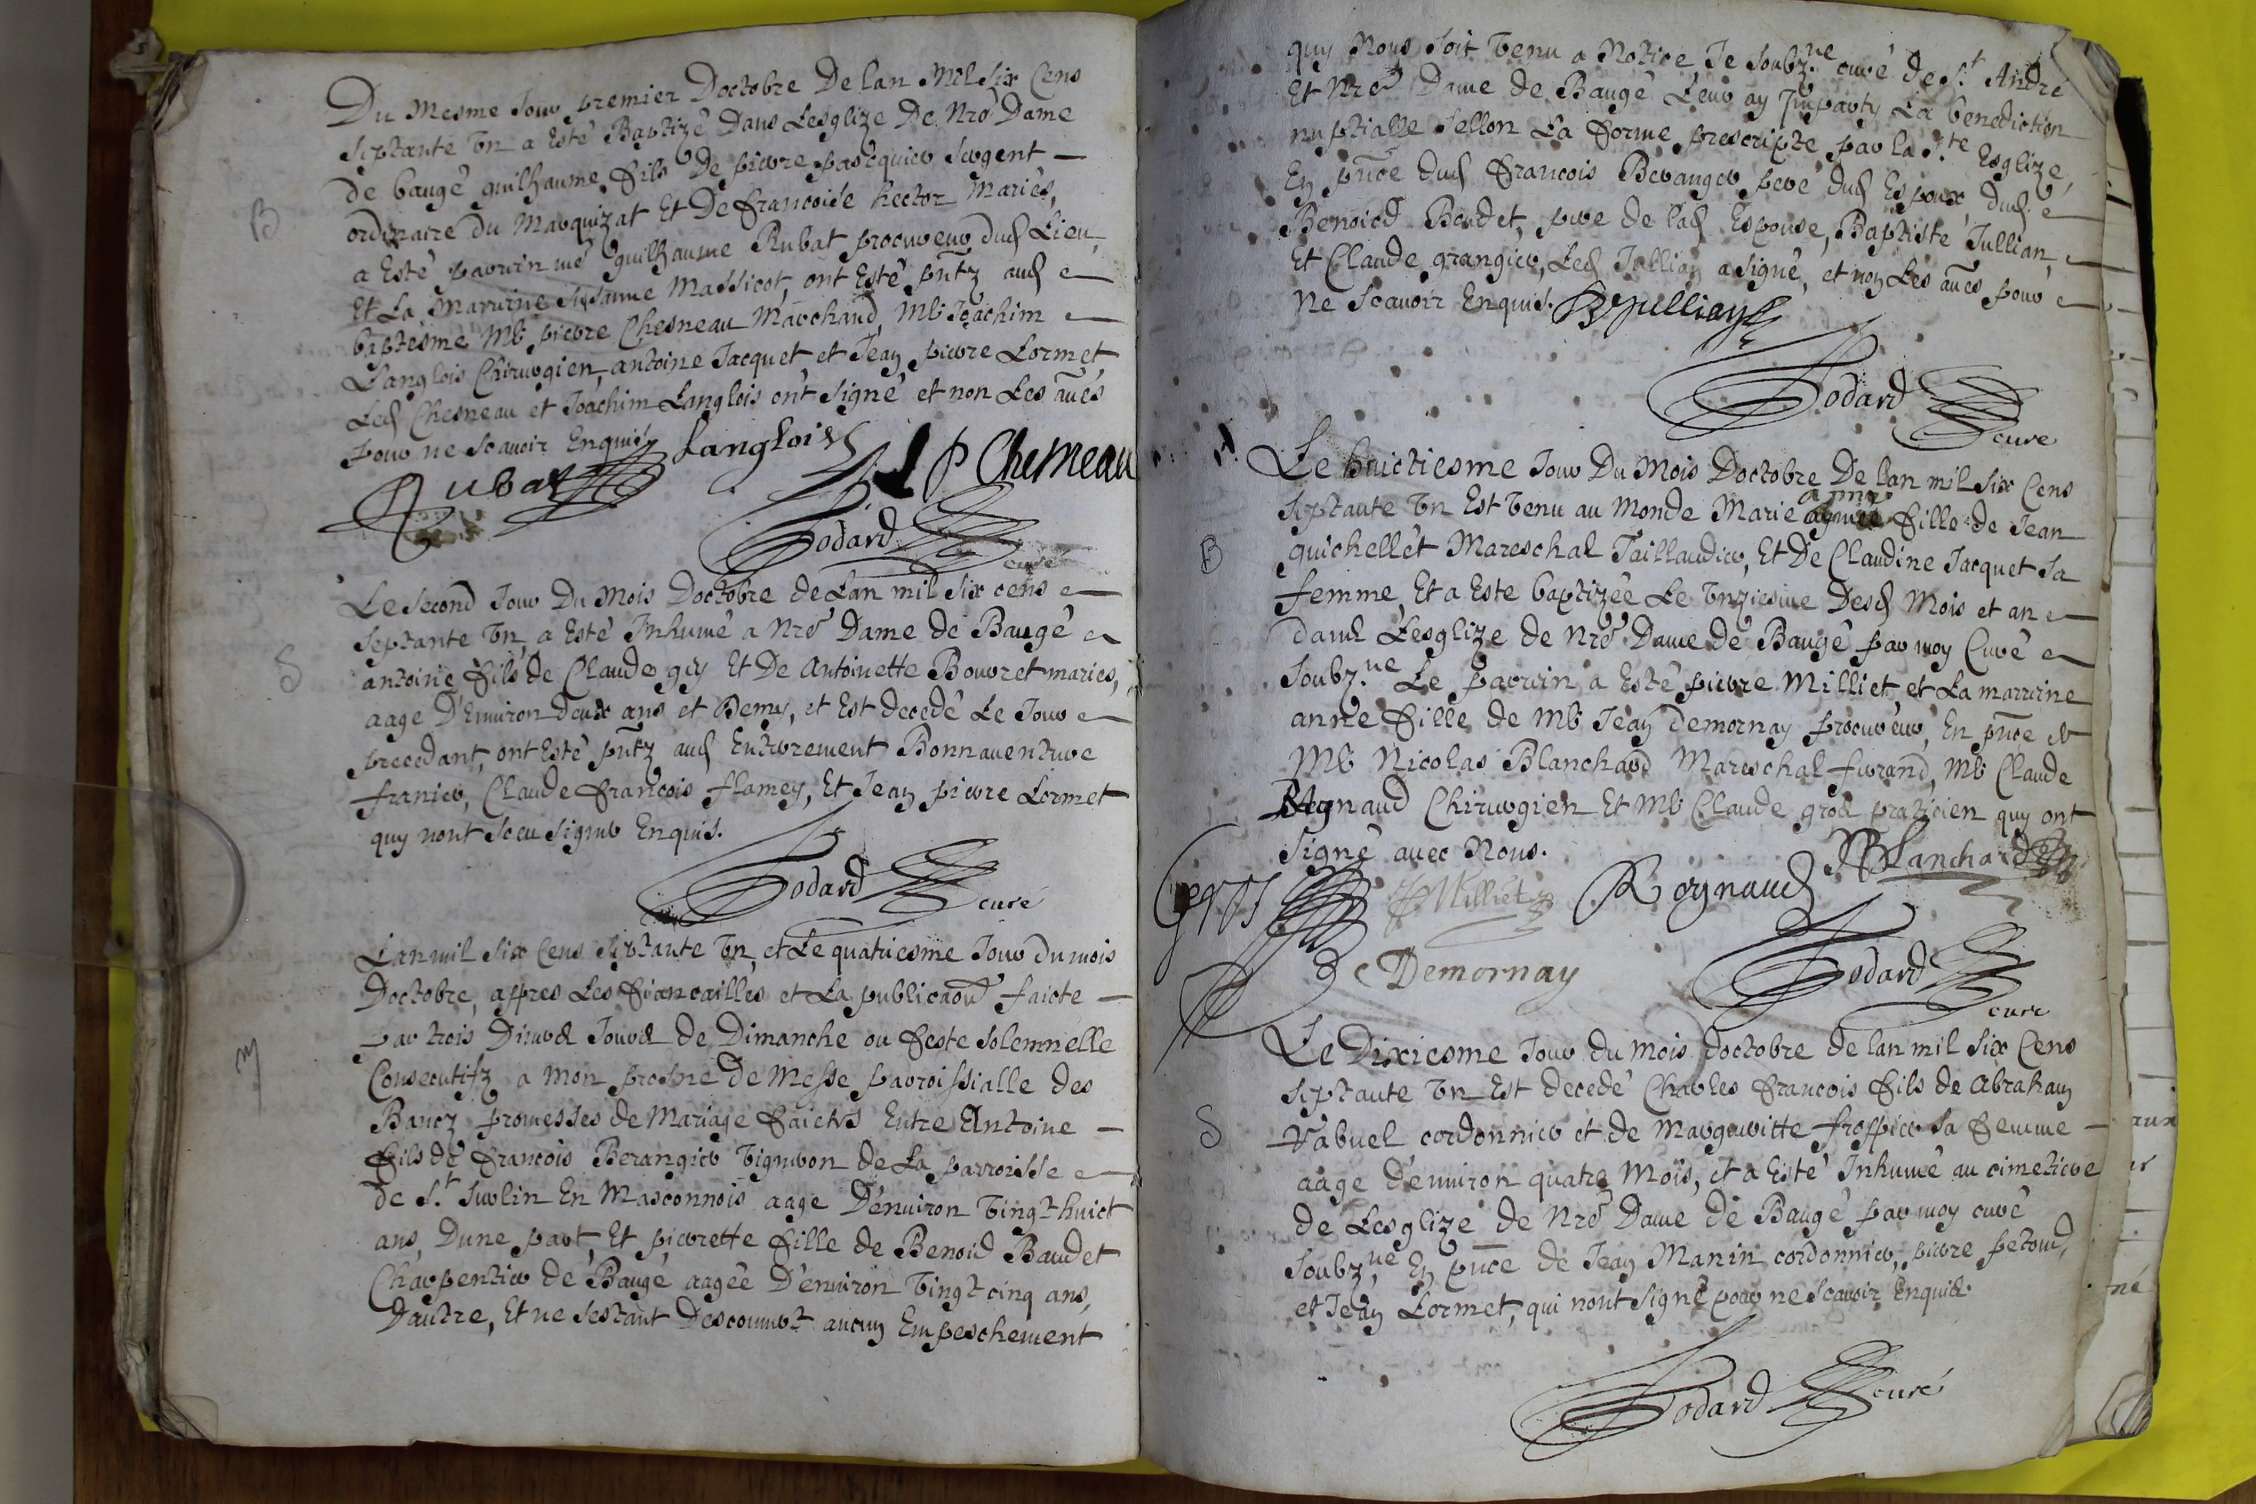 Du mesme Jour premier Doctobre De lan Mil six Cens
septante Un a esté Baptizé Dans Lesglize De Nre Dame
de baugé guilhaume fils De pierre pasequier sergent
B
ordinaire du Marquizat Et De francoise hector Mariés,
a Esté parrin me guilhaume Rubat procureur dud Lieu,
Et La Marrine Susanne Massicot, ont Esté pntz aud
baptesme Me pierre Chesneau Marchand, Me Joachim
Langlois Chirurgien, antoine Jacquet, et Jean pierre Lormet
Led Chesneau et Joachim Langlois ont signé et non Les aues
pour ne scavoir Enquis
Rubat Langlois P Chesneau
Jodard
curé
Le second Jour Du Mois Doctobre de Lan mil six cens
septante Un, a Esté Inhumé a Nre Dame de Baugé
S
antoine fils de Claude guy Et De Antoinette Bouvret maries,
aage D'Environ deux ans et Demy, et Est decedé Le Jour
precedant, ont Esté pntz aud Enterrement Bonnaventure
franier, Claude francois flamey, Et Jean pierre Lormet
quy nont sceu signer Enquis.
Jodard
curé
Lan mil six Cens septante Un, et Le quatriesme Jour du mois
Doctobre, appres Les fiancailles et La publicaon faicte
par trois Divers Jours de Dimanche ou feste solemnelle
M
Consecutifz a mon prosne de Messe parroissialle des
Bancz promesses de Mariage faictes Entre Antoine
fils de francois Berangier vigneron de La parroisse
de St Surlin En Masconnois aage D'environ Vingt huict
ans, Dune part, Et pierrette fille de Benoid Baudet
Charpentier de Baugé aagée D'environ Vingt cinq ans,
Dautre, Et ne sestant Descouvert aucun Empeschement
quy Nous soit Venu a Notice Je soubz.ne curé de St André
Et Nre Dame de Baugé Leur ay Imparty La benediction
nuptialle sellon La forme prescripte par la Ste Esglize,
En pnce dud francois Beranger pere dud Espoux, dud.
Benoicd Baudet, pere de lad Espouse, Baptiste Jullian,
Et Claude grangier, Led Jullian a signé, et non Les aues pour
ne scavoir Enquis. B Jullian
Jodard
cure
Le huictiesme Jour Du Mois Doctobre De lan mil six Cens
anne
septante Un Est Venu au Monde Marie fille de Jean
B
quichellet Mareschal Taillandier, Et De Claudine Jacquet sa
femme, Et a Este baptizée Le Unziesme Desd Mois et an
dans Lesglize de Nre Dame de Baugé par moy Curé
soubz.ne Le parrin a Esté pierre Milliet et La marrine
anne fille de Me Jean Demornay procureur, En pnce de
Me Nicolas Blanchard Mareschal ferand, Me Claude
Regnaud Chirurgien Et Me Claude gros praticien quy ont
signé avec Nous.
Gros Milliet Regnaud NBlanchard
Demornay Jodard
cure
Le Dixiesme Jour du mois doctobre de lan mil six Cens
septante Un Est decedé Charles francois fils de Abraham
S
Vabuel cordonnier et de Margueritte froppier sa femme
aage d'environ quatre Mois, et a Esté Inhumé au cimetiere
de Lesglize de Nre Dame de Baugé par moy curé
soubz.ne En pnce de Jean Manin cordonnier, pierre petoud,
et Jean Lormet, qui nont signé pour ne scavoir Enquis.
Jodard curé